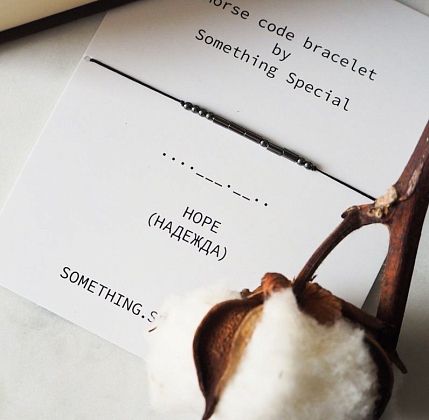 Morse code bracelet
by
Something Special
....___.__..
HOPE
(НАДЕЖДА)
SOMETHING.S